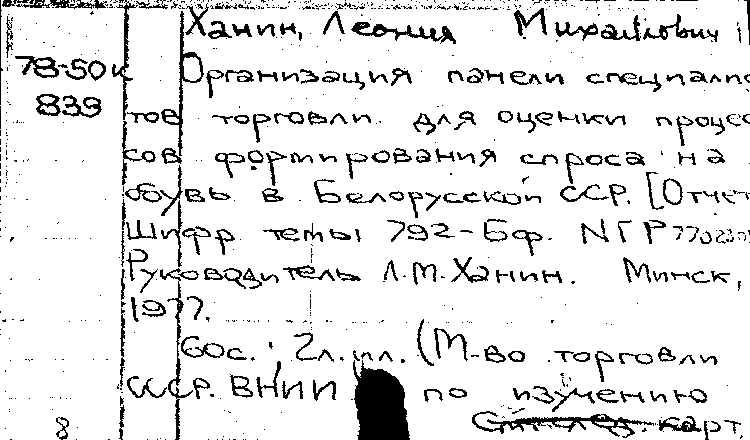 Ханин, Леонид Михайлович
78-50к Организация панели специалис
839 тов торговли для оценки процес
сов формирования спроса на
обувь в Белорусской ССР. [Отчет
Шифр темы 792-Бф. NГР
Руководитель Л.М.Ханин. Минск,
1977.
60с.; 2л.ил. (М-во торговли
СССР. ВНИИ по изучению
8 карт